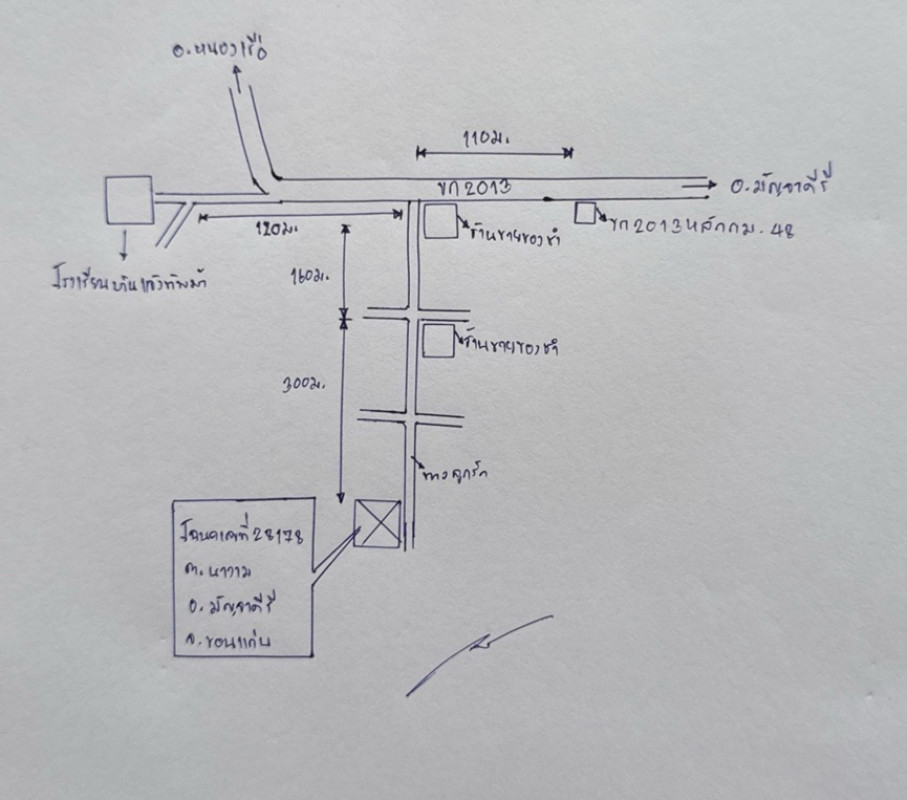 อ.หนองเรือ
110ม.
ขก2013
อ.มัญจาคีรี
120ม.
ร้านขายของชำ
ขก2013หลักกม.48
โรงเรียนหินแฮ่วทัพม้า
160ม.
ร้านขายของชำ
300ม.
ทางลูกรัง
โฉนดเลขที่28178
ต.นางาม
อ.มัญจาคีรี
จ.ขอนแก่น